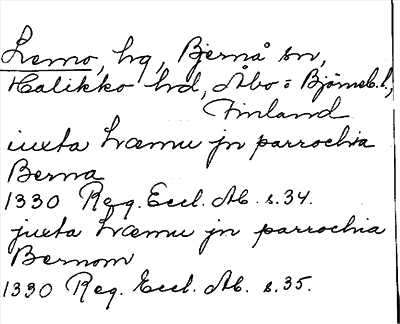 Lemo, hg, Bjernå sn,
Halikko hd, Åbo = Björneb. l.,
Finland
iuxta Læmu jn parrochia
Berna
1330 Reg. Eccl. Ab. s. 34.
juxta Læmu jn parrochia
Bernom
1330 Reg. Eccl. Ab. s. 35.